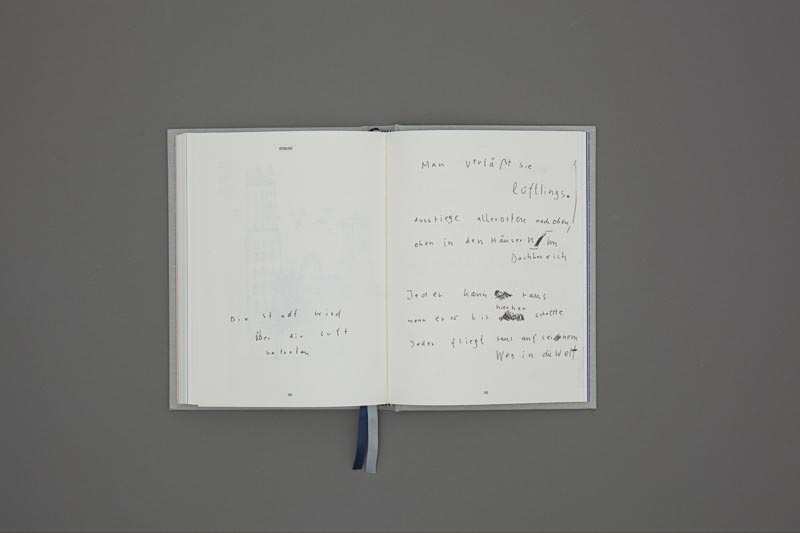 Die stadt wird
über die Luft
betreten
Man verläßt sie
lüftlings.
Ausstiege allerorten nach oben
oben in den Häusern im
Dachbereich
Jeder kann raus
hierher
wenn er es bis schaffte
Jeder fliegt raus auf seinem
Weg in die Welt